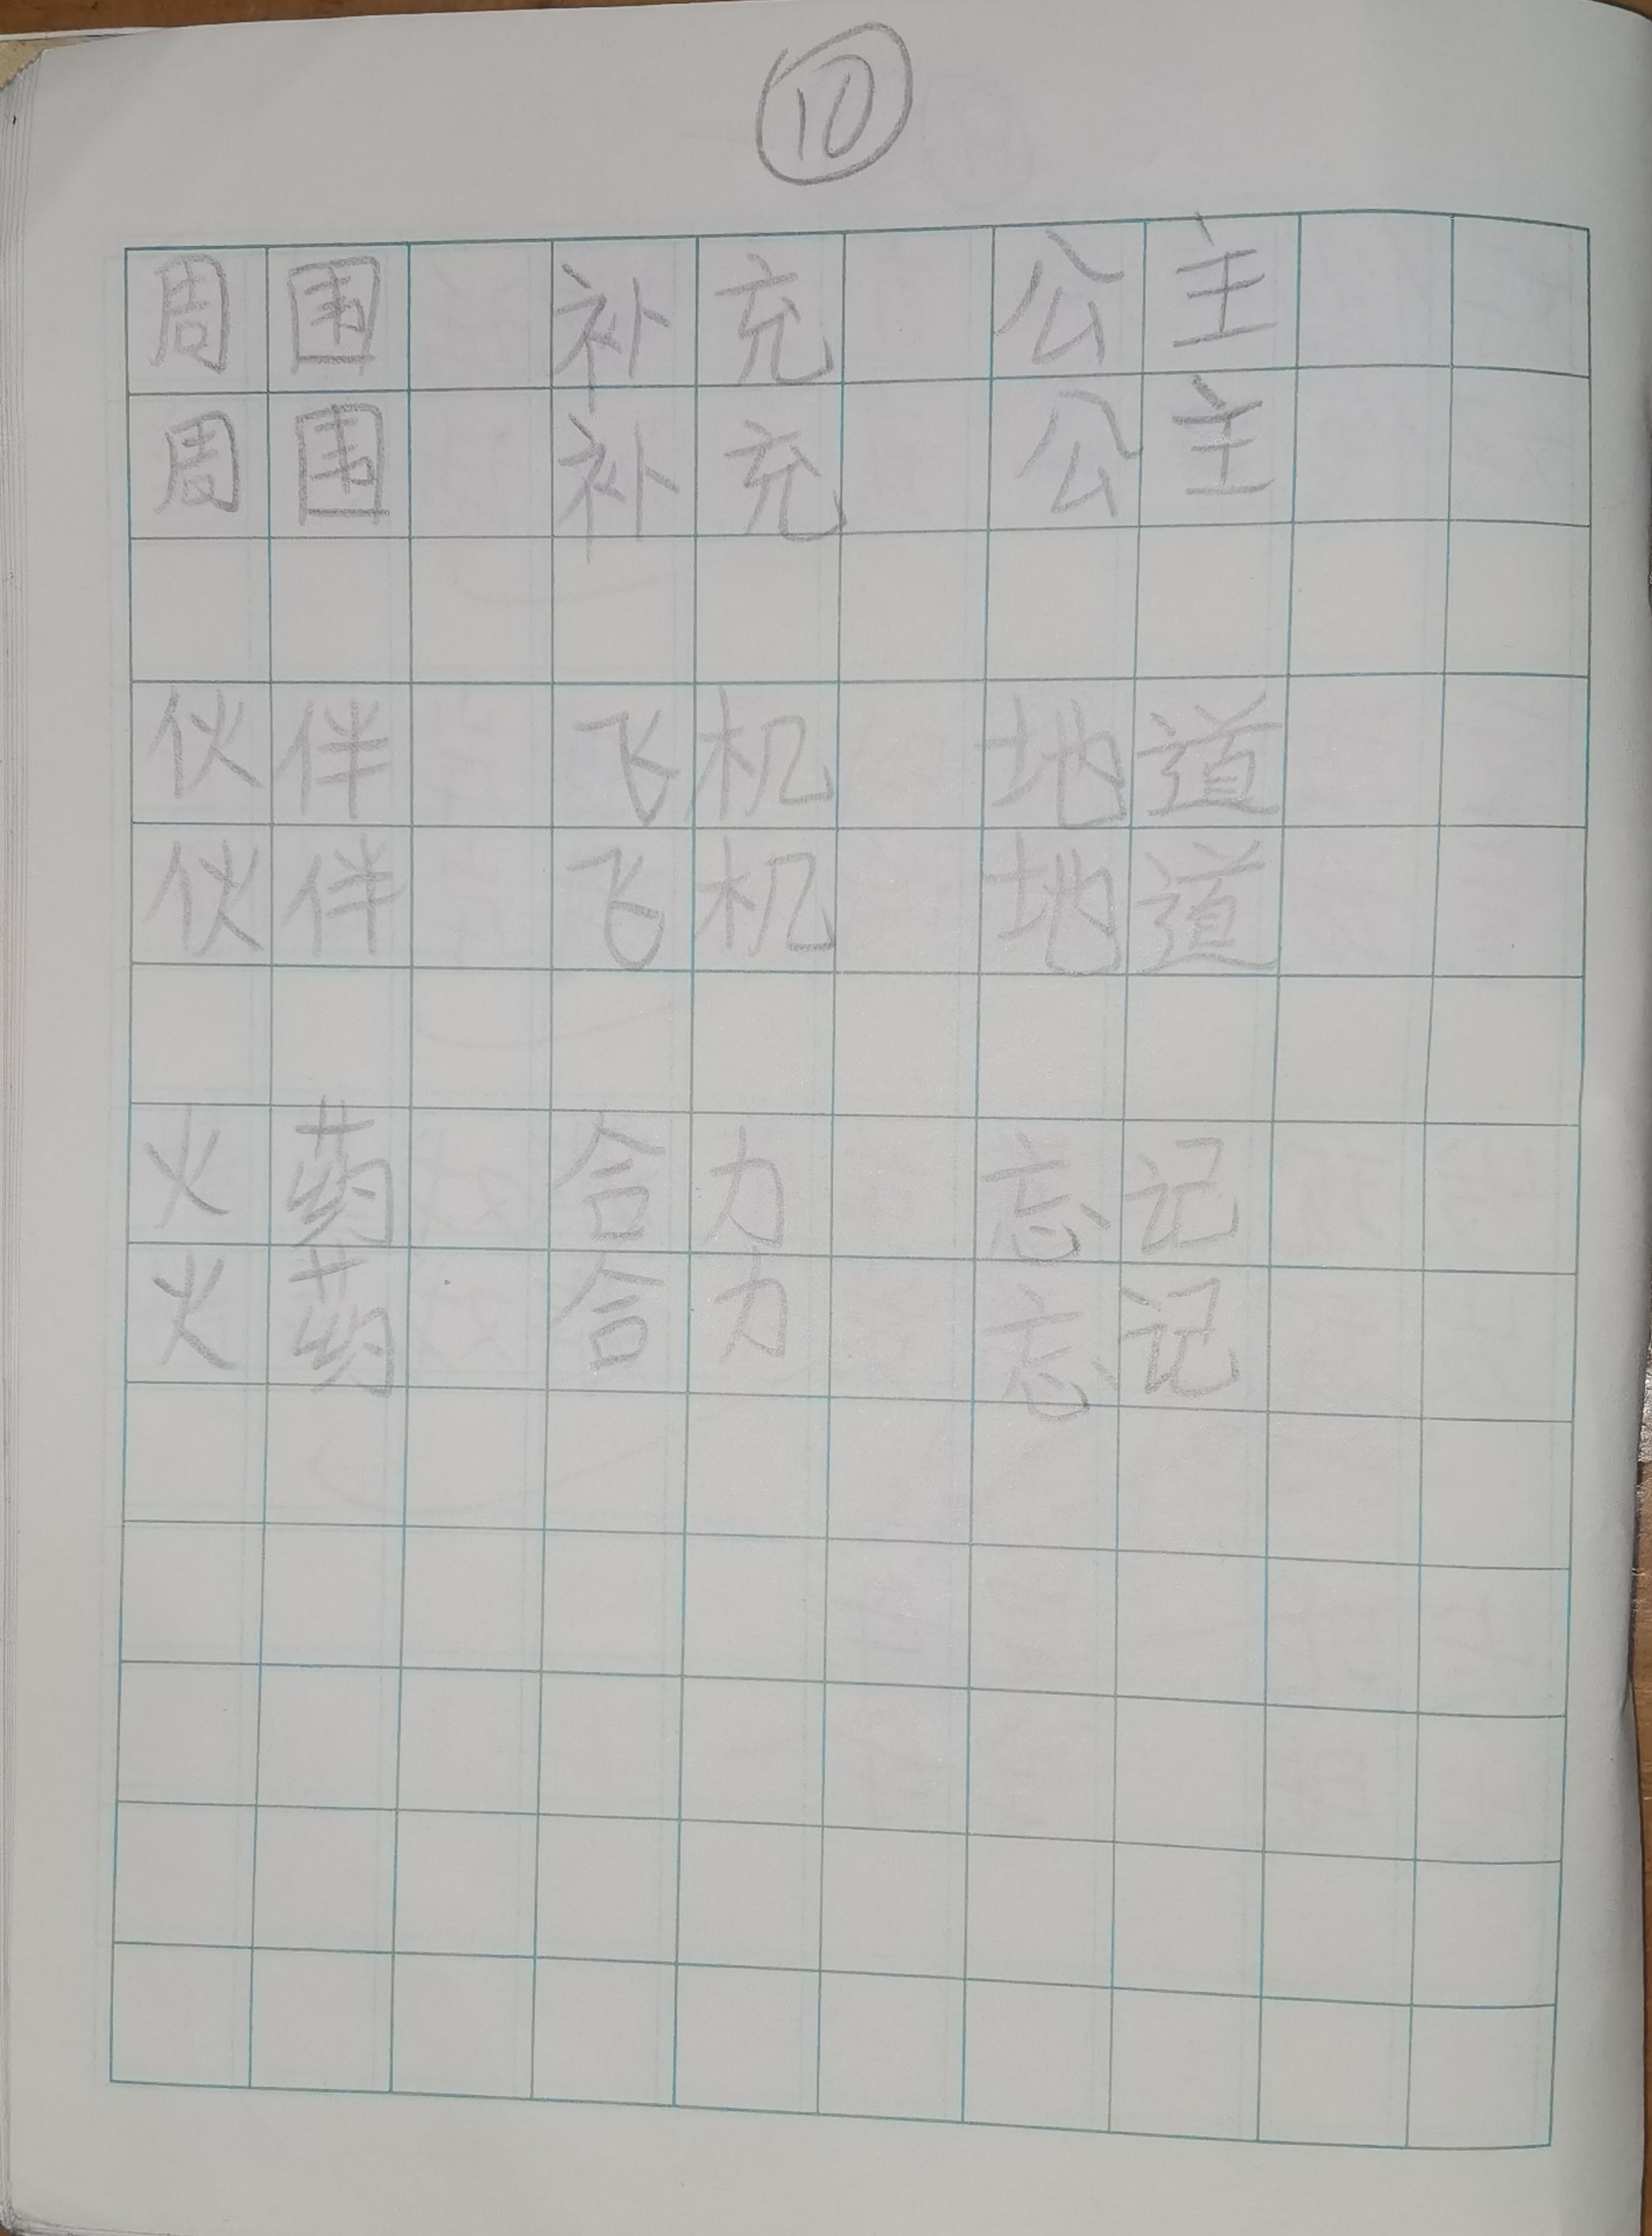 ⑩
周围 补充 公主
周围 补充 公主
伙伴 飞机 地道
伙伴 飞机 地道
火药 合力 忘记
火药 合力 忘记